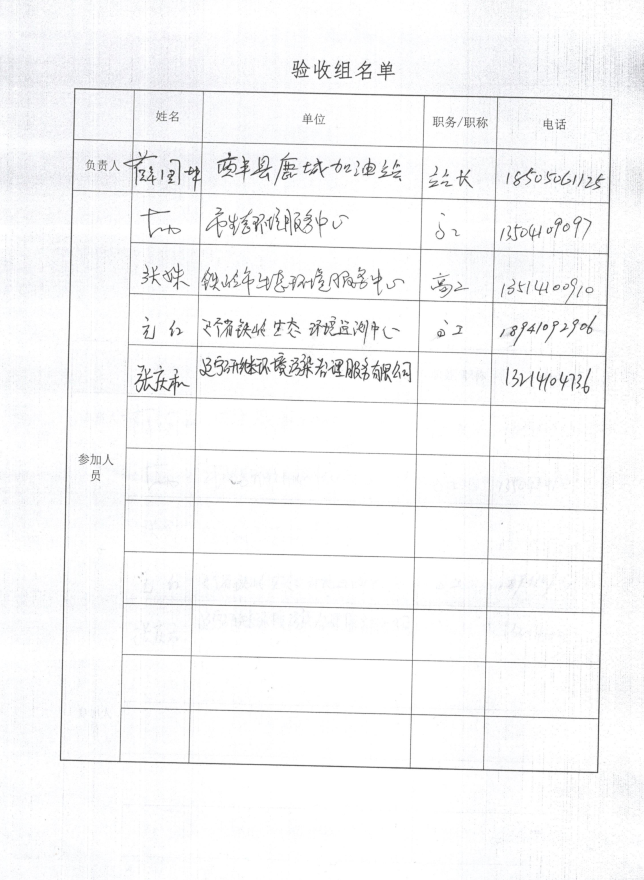 验收组名单
姓名 单位 职务/职称 电话
负责人 薛国坤 西丰县鹿城加油站 站长 18505061125
市生态环境服务中心 高工 13504109097
张姝 铁岭市生态环境服务中心 高工 13514100910
红 省铁岭生态环境监测中心 高工 18941092906
张庆 辽宁 环境污染治理服务有限公司 13214104736
参加人
员